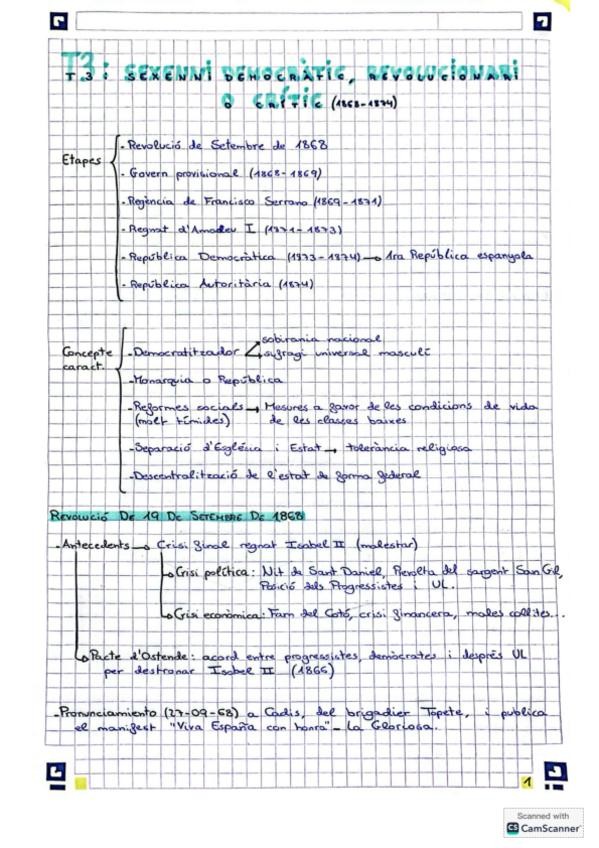 T3: SEXENNI DEMOCRÀTIC, REVOLUCIONARI
O CRÍTIC (1868-1874)
Etapes
- Revolució de Setembre de 1868
- Govern provisional (1868-1869)
- Regència de Francisco Serrano (1869-1871)
- Regnat d'Amadeu I (1771-1873)
- República Democràtica (1973-1874) → 1ra República espanyola
- República Autoritària (1874)
Concepte caract.
- Democratitzador
sobirania nacional
sufragi universal masculí
- Monarquia o República
- Reformes socials → Mesures a favor de les condicions de vida
(molt tímides) de les classes baixes
- Separació d'Església i Estat → tolerància religiosa
- Descentralització de l'estat de forma federal
REVOLUCIÓ DE 19 DE SETEMBRE DE 1868
- Antecedents → Crisi final regnat Isabel II (malestar)
Crisi política: Nit de Sant Daniel, Revolta del sargent San Gil,
dels Progressistes i UL.
Crisi econòmica: Fam del Cotó, crisi financera, males collites...
Pacte d'Ostende: acord entre progressistes, demòcrates i després UL
per destronar Isabel II (1866)
- Pronunciamiento (27-09-68) a Cadis, del brigadier Topete, i publica
el manifest "Viva España con honra" - La Gloriosa.
1
Scanned with
CS CamScanner